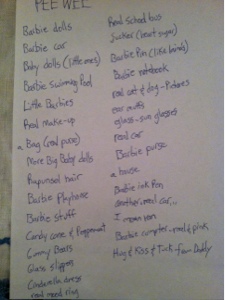 PEE WEE
Barbie dolls
Barbie car
Baby dolls (little ones)
Barbie Swimming Pool
Little Barbies
Real make-up
a Bag (real purse)
More Big Baby dolls
Rapunsel hair
Barbie playhouse
Barbie stuff
Candy cane & Peppermint
Gummy Bears
Glass slippers
Cinderella dress
real mood ring
Real school bus
Sucker (heart sugar)
Barbie Pen (like kinds)
Barbie notebook
real cat & dog - Pictures
ear muffs
glass - sun glasses
real car
Barbie purse
a house
Barbie ink Pen
another real car...
I mean van
Barbie computer - real & pink
Hug & Kiss & Tuck - from Daddy